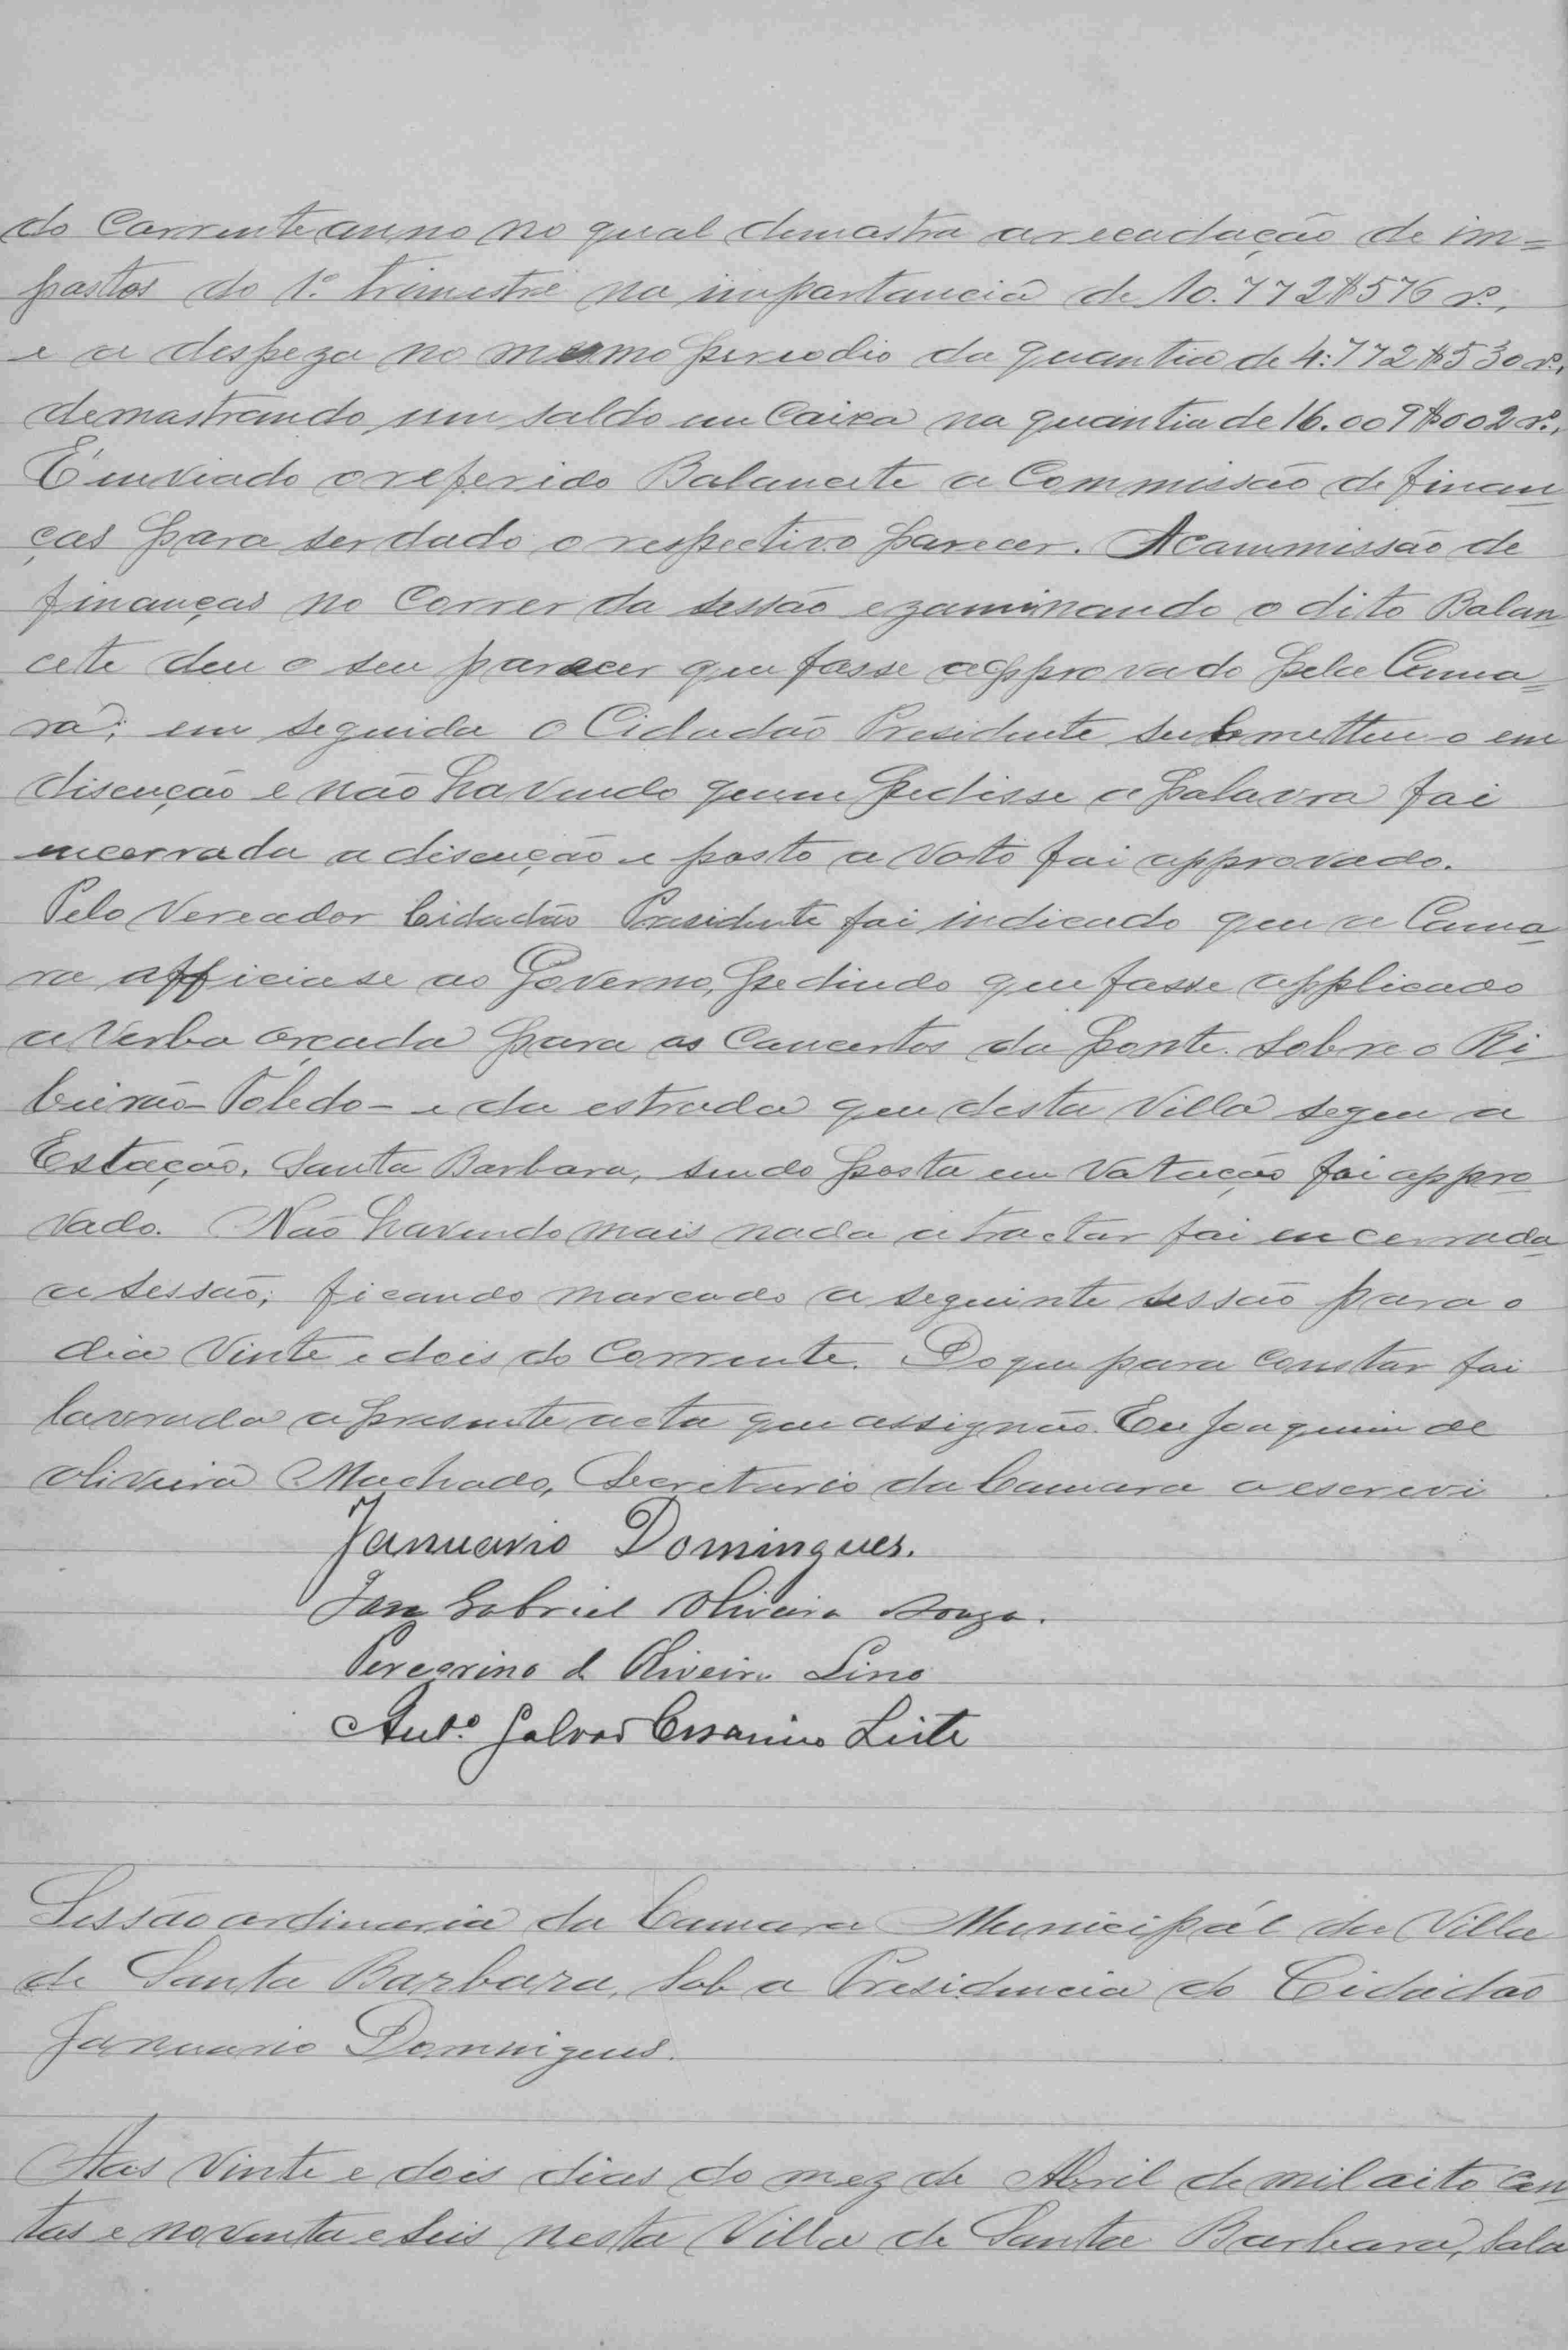 do Corrente anno no qual demostra arecadação de im=
postos do 1º trimestre na importancia de 10.772$576 rs.,
e a despeza no mesmo periodio da quantia de 4:772$530 rs.,
demostrando um saldo em Caixa na quantia de 16.009$002 rs.,
É enviado o referido Balancete a Commissão de finan
ças para ser dado o respectivo parecer. A Commissão de
finanças no Correr da sessão ezaminando o dito Balan
cete deu o seu parecer que fosse approvado pela Cama=
ra; em seguida o Cidadão Presidente submetteu-o em
discução e não havendo quem pedisse a palavra foi
encerrada a discução e posto a voto foi approvado.
Pelo Vereador Cidadão Presidente foi indicado que a Cama
ra officiase ao Governo, pedindo que fosse applicado
a Verba orçada para os Concertos da ponte sobre o Ri
beirão-Toledo- e da estrada que desta Villa segue a
Estação, Santa Barbara, sendo posta em Votação foi appro
vado. Não havendo mais nada a tractar foi encerrada
a sessão; ficando marcado a seguinte sessão para o
dia Vinte e dois do Corrente. Do que para constar foi
lavrada a presente acta que assignão. Eu Joaquim de
Oliveira Machado, Secretario da Camara a escrevi.
Januario Domingues.
Jose Gabriel Oliveira Souza.
Peregrino d Oliveira Lino
Antº Galvão Cesarino Leite
Sessão ordinaria da Camara Municipál da Villa
de Santa Barbara, sob a Presidencia do Cidadão
Januario Domingues.
Aos Vinte e dois dias do mez de Abril de mil oito cen
tos e noventa e seis nesta Villa de Santa Barbara, sala